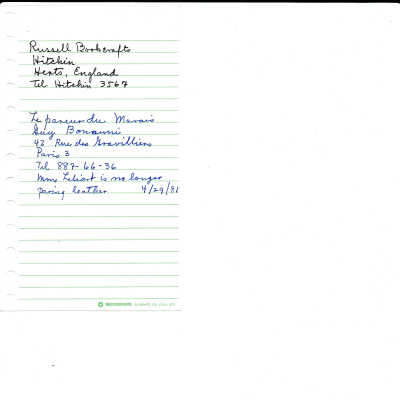 Russell Bookcrafts
Hitchin
Herts, England
Tel Hitchin 3567
Le pareur du Marais
Guy Bonanni
42 Rue des Gravilliers
Paris 3
Tel 887-66-36
Mme is no longer
paring leather 4/29/81